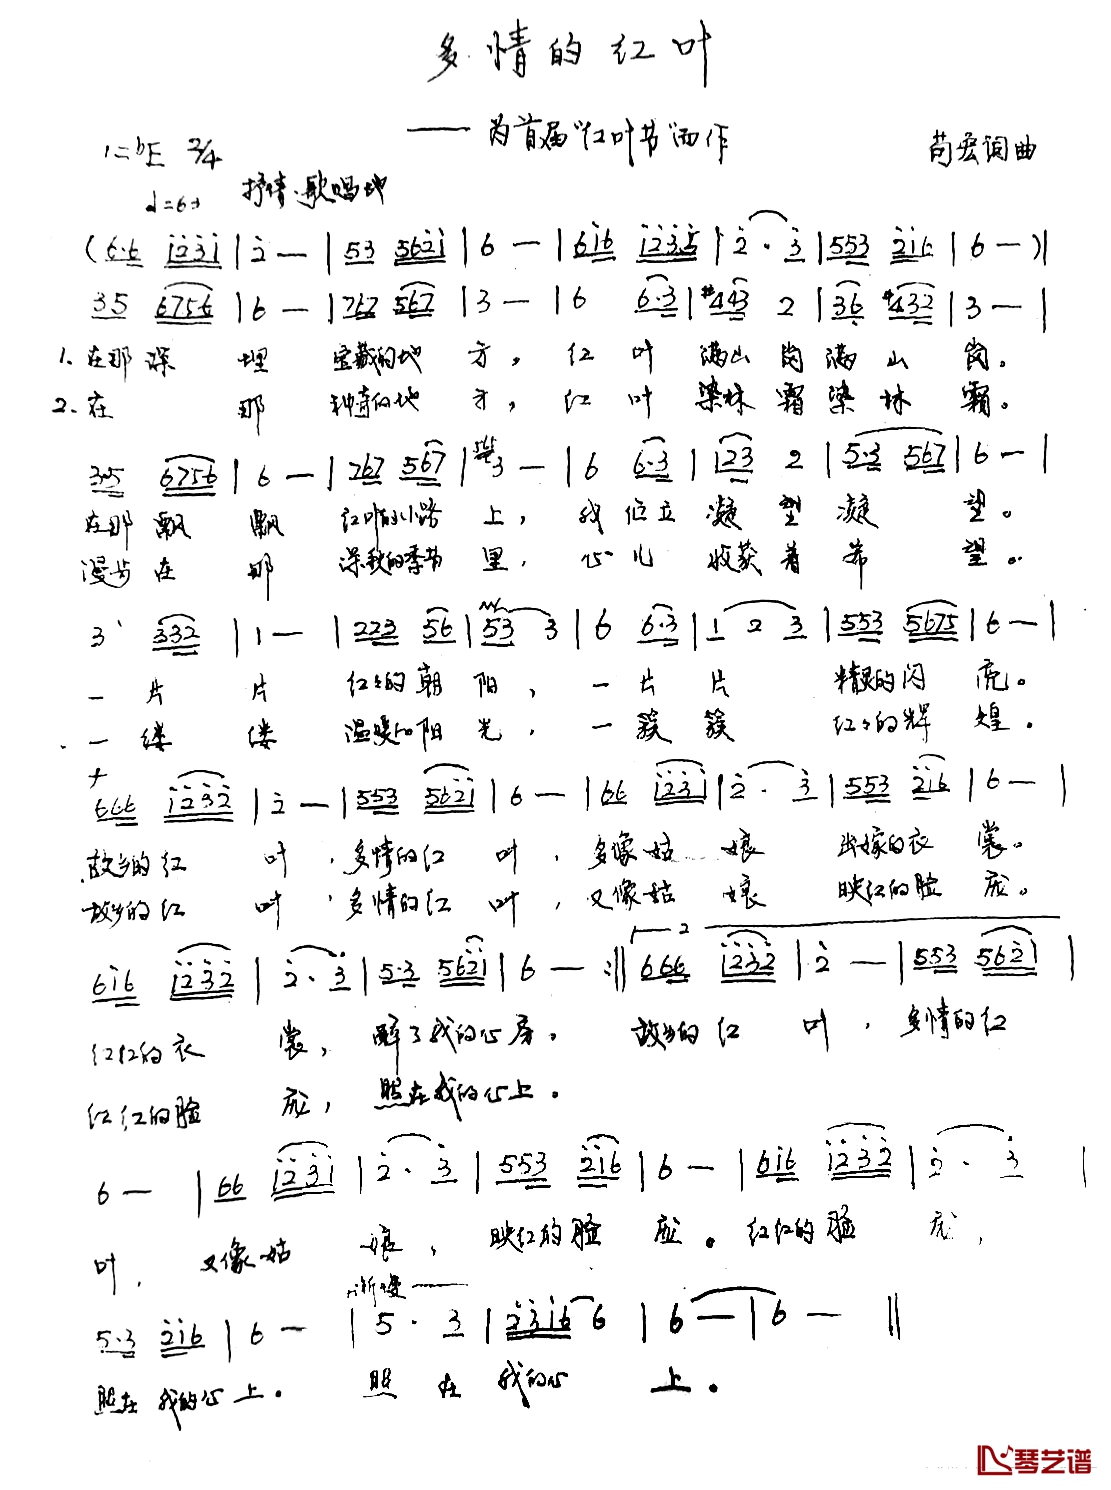 多情的红叶
——为首届“红叶节”而作
1=bE 2/4 苟宏词曲
♩=63 抒情、歌唱地
(6·6 1231 | 2 — | 53 5621 | 6 — | 616 1235 | 2· 3 | 553 216 | 6 — )|
35 6756 | 6 — | 767 567 | 3 — | 6 6·3 | #443 2 | 36 #432 | 3 — |
1. 在那深埋宝藏的地方，红叶满山岗满山岗。
2. 在那神奇的地方，红叶染林霜染林霜。
3·5 6756 | 6 — | 767 567 | 3 — | 6 6·3 | 123 2 | 5·3 567 | 6 — |
在那飘飘红叶的小路上，我伫立凝望凝望。
漫步在那深秋的季节里，心儿收获着希望。
3 332 | 1 — | 223 56 | 53 3 | 6 6·3 | 1 2 3 | 553 5675 | 6 — |
一片片红红的朝阳，一片片精灵的闪亮。
一缕缕温暖的阳光，一簇簇红红的辉煌。
666 1232 | 2 — | 553 5621 | 6 — | 66 1231 | 2· 3 | 553 216 | 6 — |
故乡的红叶，多情的红叶，多像姑娘出嫁的衣裳。
故乡的红叶，多情的红叶，又像姑娘映红的脸庞。
616 1232 | 2· 3 | 5·3 5621 | 6 — :‖ 2 666 1232 | 2 — | 553 5621 |
红红的衣裳，醉了我的心房。故乡的红叶，多情的红
红红的脸庞，照在我的心上。
6 — | 66 1231 | 2· 3 | 553 216 | 6 — | 616 1232 | 2· 3 |
叶，又像姑娘，映红的脸庞。红红的脸庞，
渐慢——
5·3 216 | 6 — | 5· 3 | 2316 6 | 6 — | 6 — ‖
照在我的心上。照在我的心上。
琴艺谱